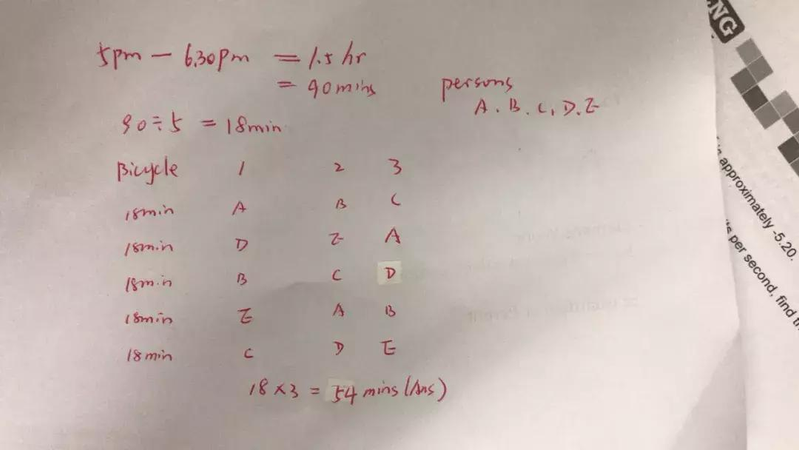 5pm — 6.30pm = 1.5 hr
= 90 mins
persons
A. B. C, D. E
90 ÷ 5 = 18 min
Bicycle 1 2 3
18min A B C
18min D E A
18min B C D
18min E A B
18min C D E
18 × 3 = 54 mins (Ans)
NG
approximately -5.20.
per second, find